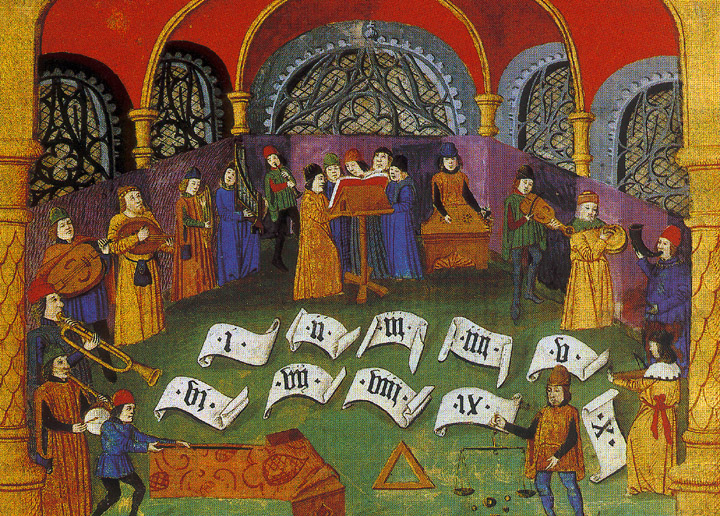 ·i· ·ii· ·iii· ·iiii· ·v·
·vi· ·vii· ·viii· ·ix· ·x·